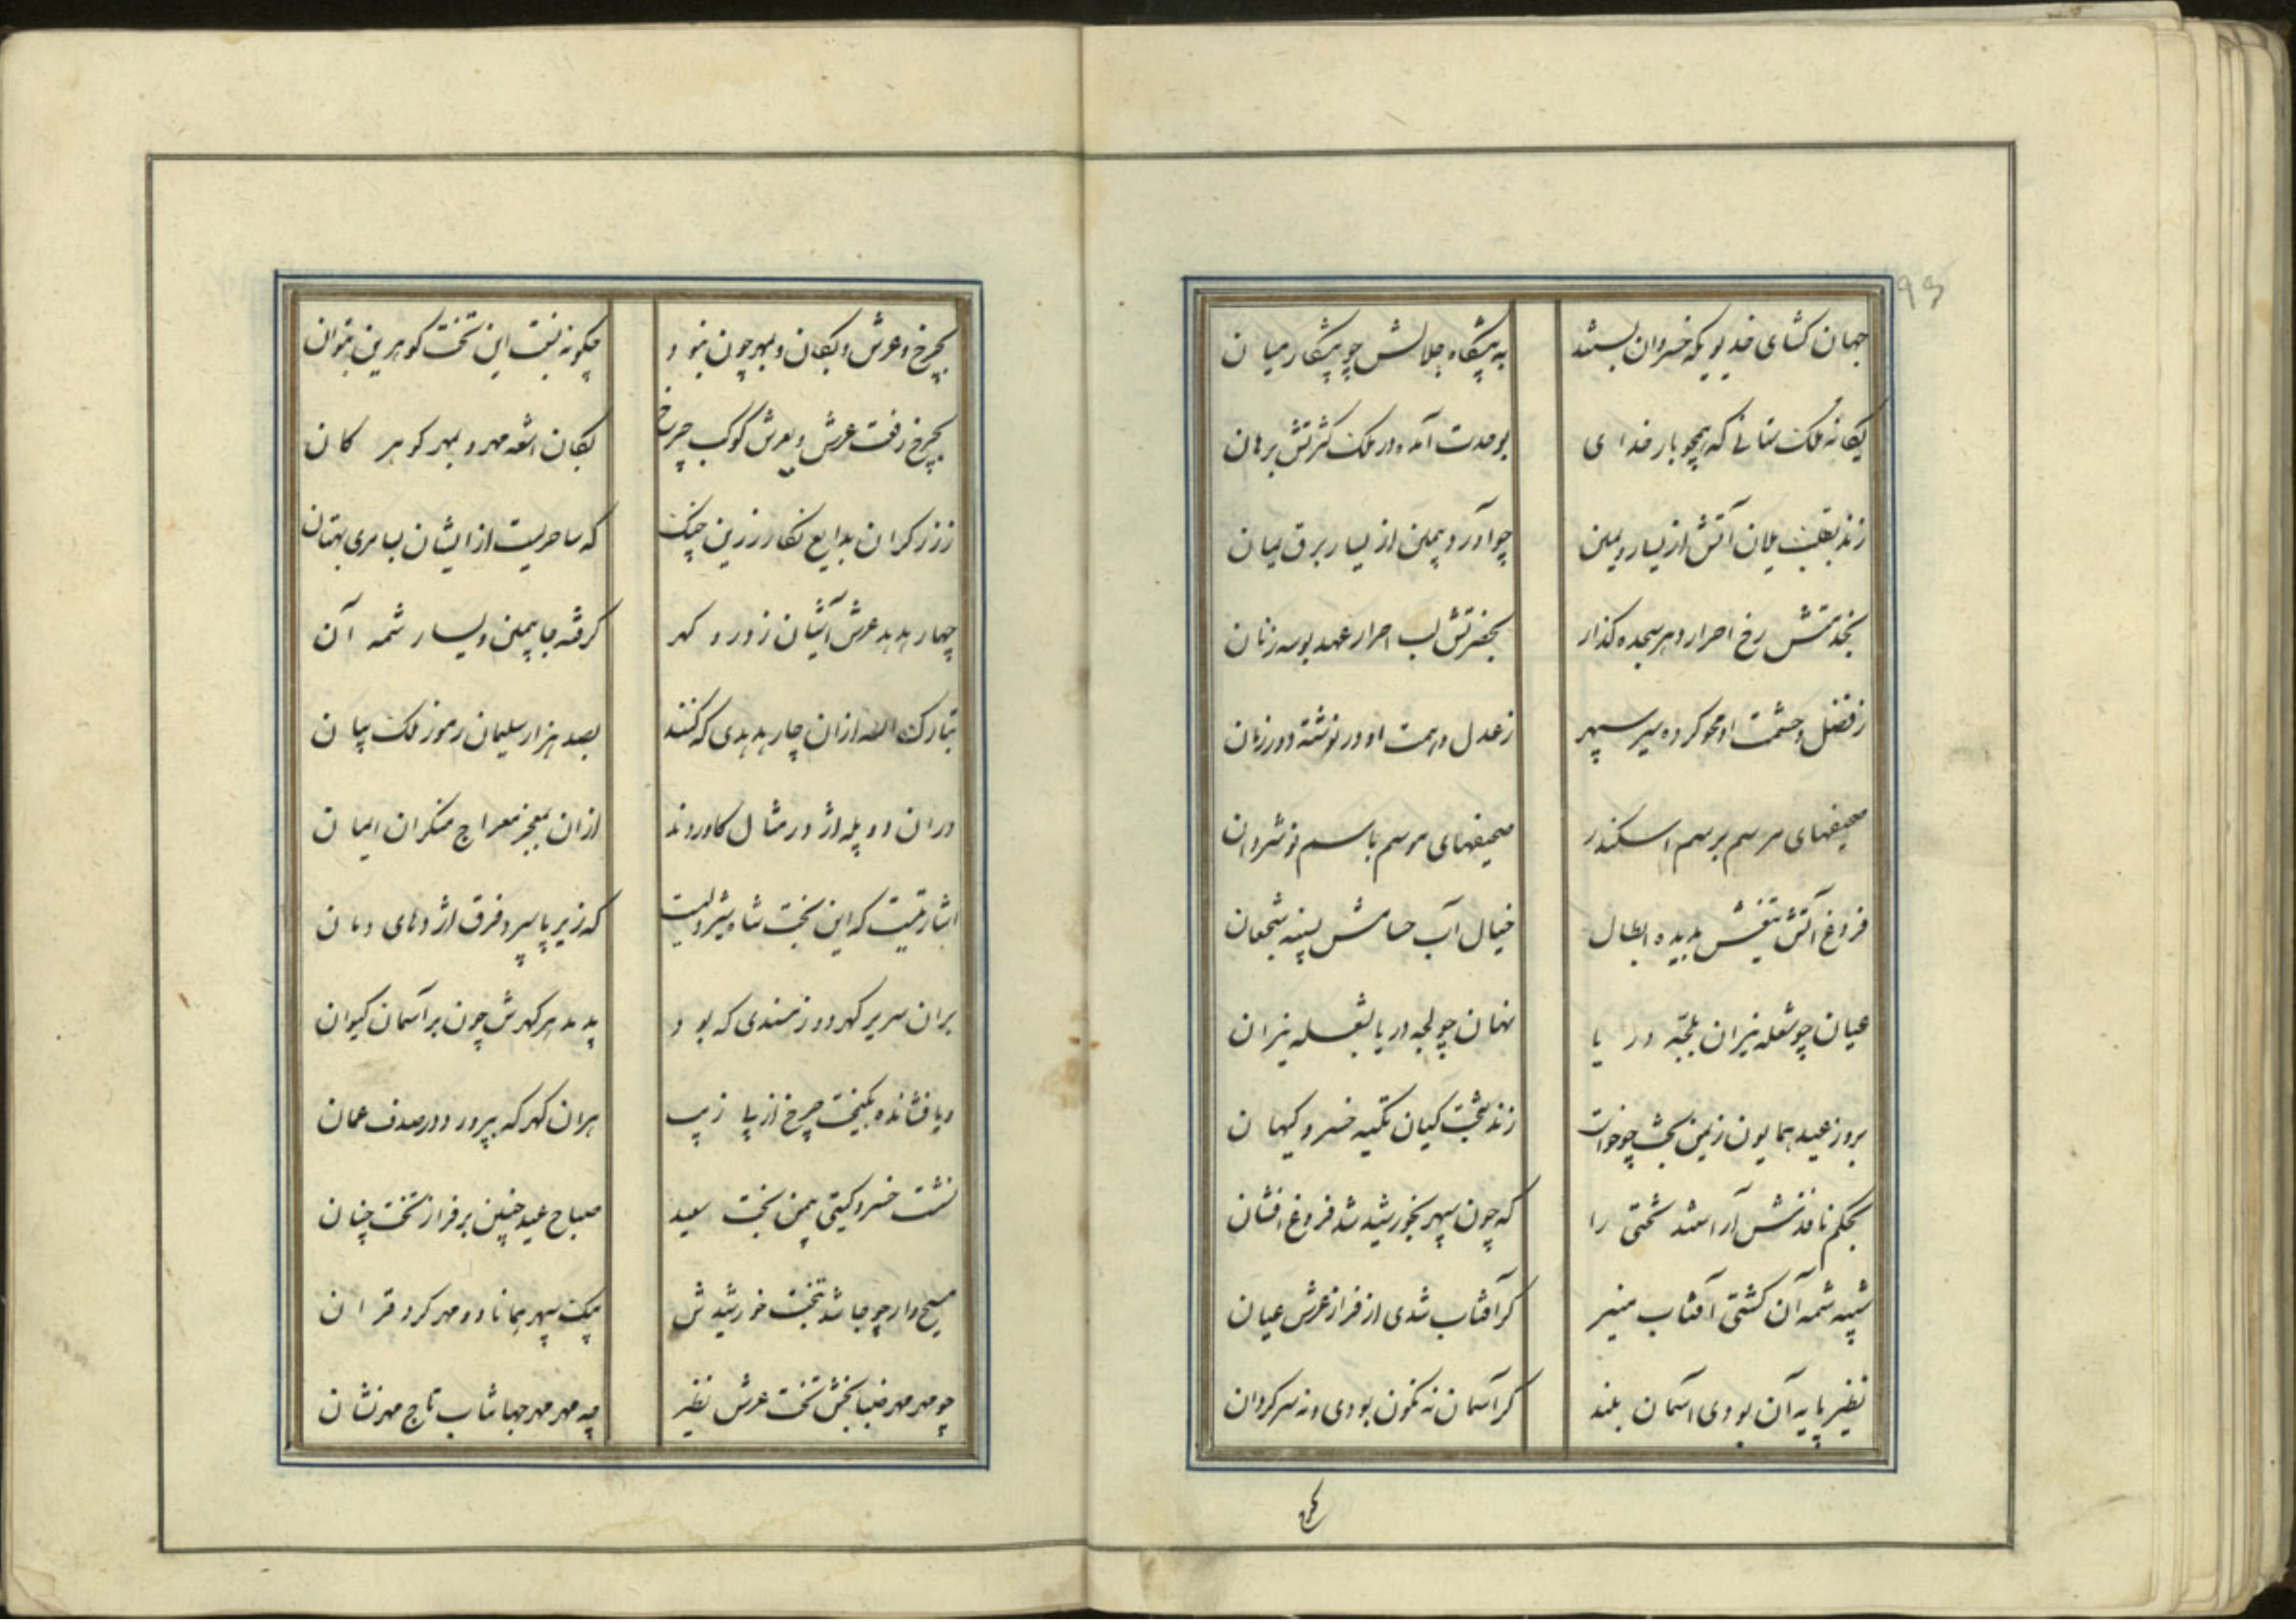 93
جهان کشای خدیویکه خسروان بستند به پیشگاه جلالش چو پیشکار میان
یکانه ملک ستانی که همچو بار خدای بوحدت آمده در ملک کثرتش برهان
زند بقلب یلان آتش از یسار و یمین چو آورد بیمین از یسار برق یمان
بخدمتش رخ احرار دهر سجده کذار بحضرتش لب احرار عهد بوسه زنان
ز فضل و حشمت او محو کرده سیر سپهر ز عدل و همت او در نوشته دور زمان
صحیفهای مرسم برسم اسکندر صحیفهای موسم باسم نوشروان
فروغ آتش تیغش بدیده ابطال خیال آب حسامش بسینه شجعان
عیان چو شعله نیران بلجّه دریا نهان چو لجه دریا بشعله نیران
بروز عید همایون زیمن بخت چو خواست زند بتخت کیان تکیه خسرو کیهان
بحکم نافذش آراستند تختی را که چون سپهر بخورشید شد فروغ افشان
شبیه شمه آن کشتی آفتاب منیر کر آفتاب شدی از فراز عرش عیان
نظیر پایه آن بودی آسمان بلند کر آسمان نه نکون بودی و نه سرکردان
بچرخ و عرش و بکان و ببهر چون نبود چکونه نسبت این تخت کوهرین بتوان
بچرخ رفعت عرش و بعرش کوکب چرخ بکان اشعه مهر و بمهر کوهر کان
ز زرکران بدایع نکار زرین چنک که ساحریست از ایشان بسامری بهتان
چهار هدهد عرش آشیان ز در و کهر کرفته جا بیمین و یسار شمه آن
تبارک الله ازان چار هدهدی که کنند بصد هزار سلیمان رموز ملک بیان
دران دو پله اژدر مثال کاوردند ازان بمعجز معراج منکران ایمان
اشارتیست که این تخت شاه شیردلیست که زیر پا سپرد فرق اژدهای دمان
بران سریر کهر دوز مسندی که بود پدید هر کهرش چون بر آسمان کیوان
و یا فشانده بکیمخت چرخ از پا زیب هران کهر که بپرورد در صدف عمان
نشست خسرو کیتی بیمن بخت سعید صباح عید چنین بر فراز تخت چنان
مسیح وار چو جا شد بتخت خورشیدش بیک سپهر همانا دو مهر کرد قران
چو مهر مهر ضیا بخش تخت عرش نظیر چه مهر مهر جهانتاب تاج مهر نشان